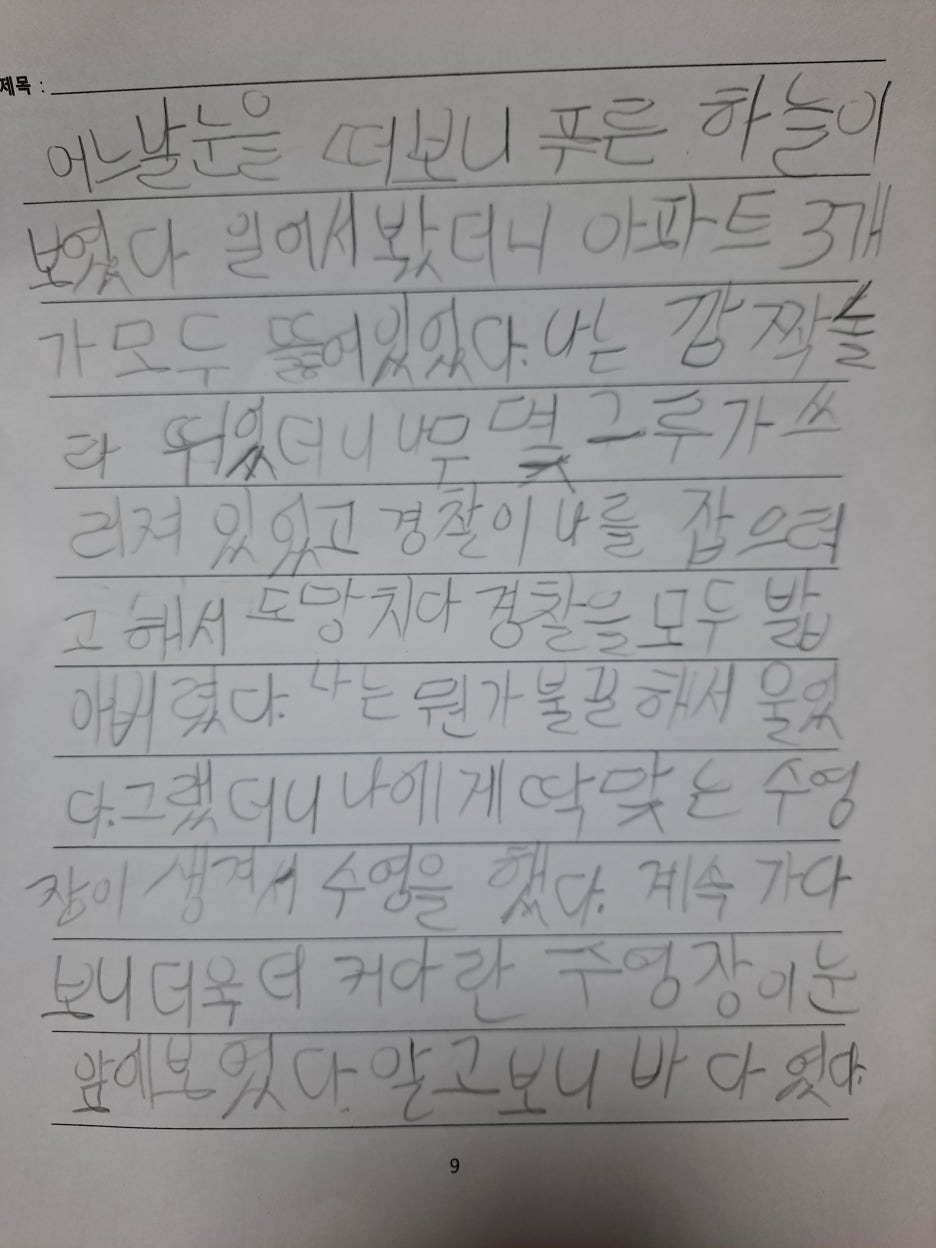 제목 :
어느날 눈을 떠보니 푸른 하늘이
보였다 일어서 봤더니 아파트 3개
가 모두 뚫어있었다. 나는 깜짝놀
라 뛰었더니 나무 몇 그루가 쓰
러져 있었고 경찰이 나를 잡으려
고 해서 도망치다 경찰을 모두 밟
아버렸다. 나는 뭔가 불끌해서 울었
다. 그랬더니 나에게 딱 맞는 수영
장이 생겨서 수영을 했다. 계속 가다
보니 더욱 더 커다란 수영장이 눈
앞에 보였다. 알고보니 바다였다.
9